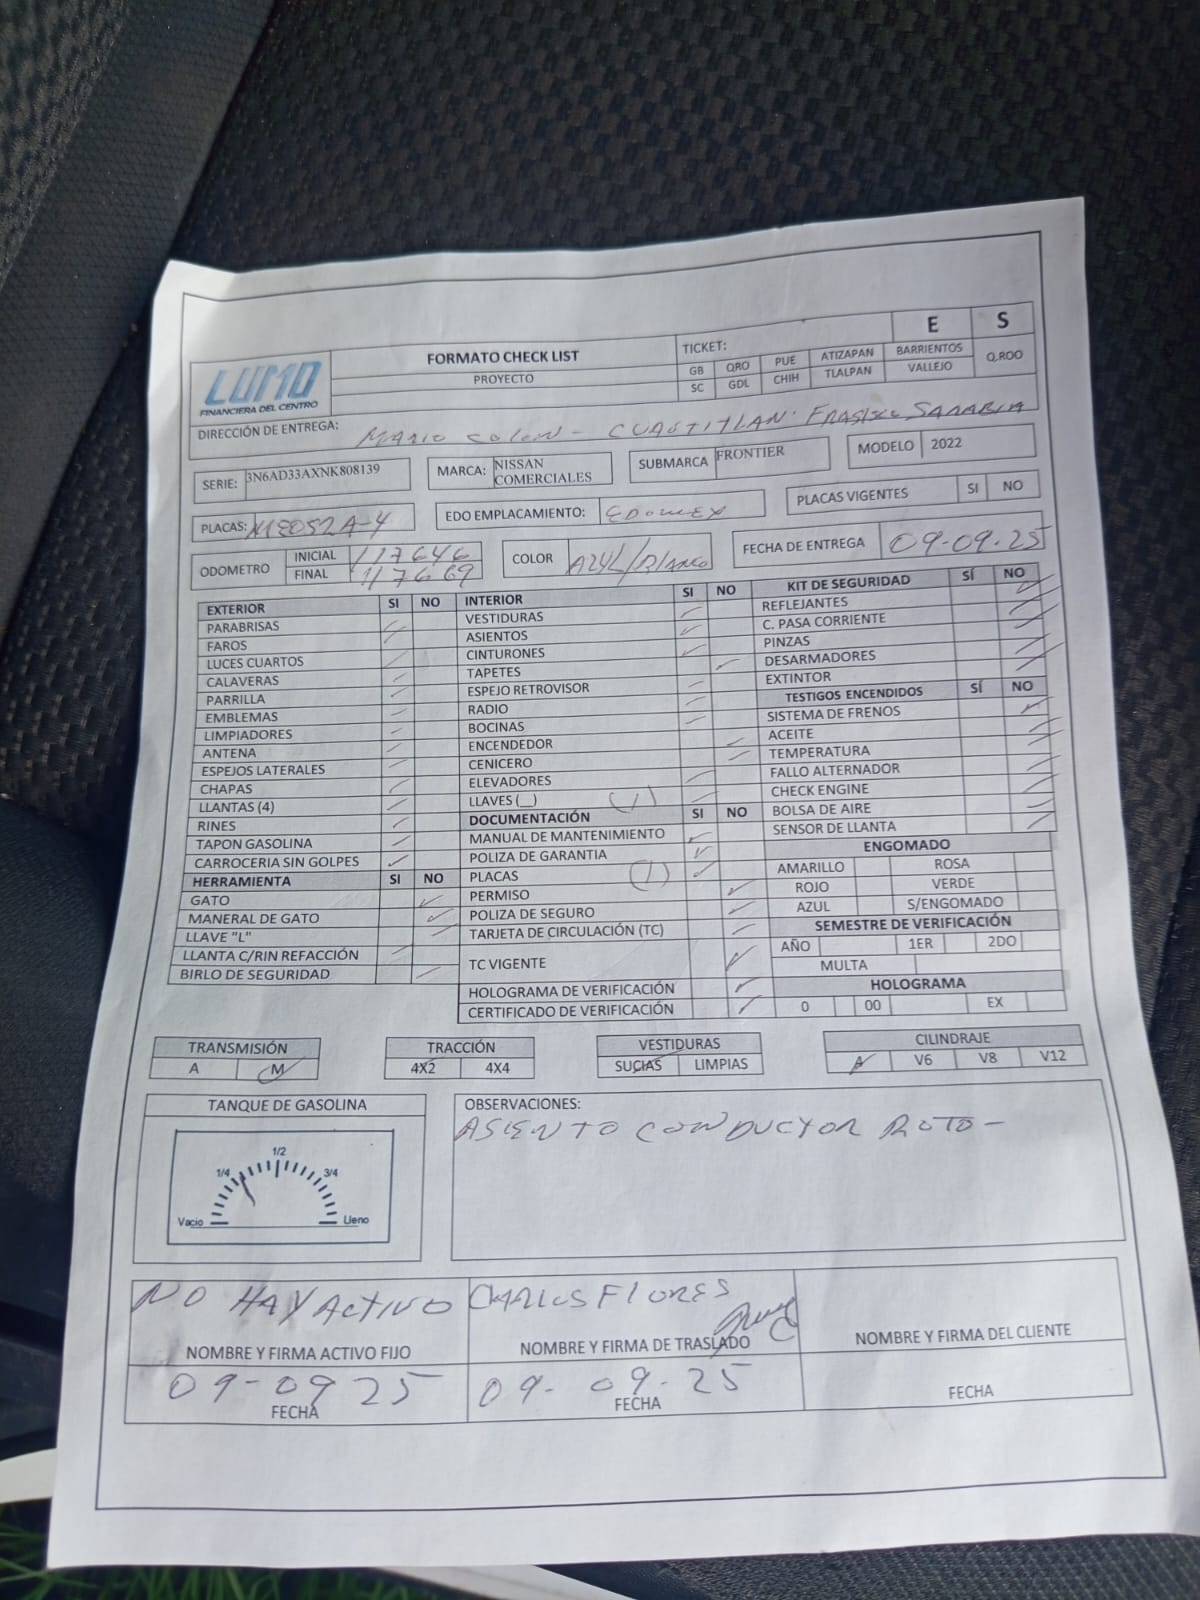 LUMO
FINANCIERA DEL CENTRO
FORMATO CHECK LIST
PROYECTO
TICKET: E S
GB QRO PUE ATIZAPAN BARRIENTOS Q.ROO
SC GDL CHIH TLALPAN VALLEJO
DIRECCIÓN DE ENTREGA: MARIO COLON - CUATITLAN. SARABIA
SERIE: 3N6AD33AXNK808139 MARCA: NISSAN COMERCIALES SUBMARCA FRONTIER MODELO 2022
PLACAS: EDO EMPLACAMIENTO: EDOMEX PLACAS VIGENTES SI NO
ODOMETRO INICIAL 117646 COLOR AZUL/BLANCO FECHA DE ENTREGA 09-09-25
FINAL 117669
EXTERIOR SI NO
PARABRISAS
FAROS
LUCES CUARTOS
CALAVERAS
PARRILLA
EMBLEMAS
LIMPIADORES
ANTENA
ESPEJOS LATERALES
CHAPAS
LLANTAS (4)
RINES
TAPON GASOLINA
CARROCERIA SIN GOLPES
HERRAMIENTA SI NO
GATO
MANERAL DE GATO
LLAVE "L"
LLANTA C/RIN REFACCIÓN
BIRLO DE SEGURIDAD
INTERIOR SI NO
VESTIDURAS
ASIENTOS
CINTURONES
TAPETES
ESPEJO RETROVISOR
RADIO
BOCINAS
ENCENDEDOR
CENICERO
ELEVADORES
LLAVES (__) (1)
DOCUMENTACIÓN SI NO
MANUAL DE MANTENIMIENTO
POLIZA DE GARANTIA
PLACAS (1)
PERMISO
POLIZA DE SEGURO
TARJETA DE CIRCULACIÓN (TC)
TC VIGENTE
HOLOGRAMA DE VERIFICACIÓN
CERTIFICADO DE VERIFICACIÓN
KIT DE SEGURIDAD SÍ NO
REFLEJANTES
C. PASA CORRIENTE
PINZAS
DESARMADORES
EXTINTOR
TESTIGOS ENCENDIDOS SÍ NO
SISTEMA DE FRENOS
ACEITE
TEMPERATURA
FALLO ALTERNADOR
CHECK ENGINE
BOLSA DE AIRE
SENSOR DE LLANTA
ENGOMADO
AMARILLO ROSA
ROJO VERDE
AZUL S/ENGOMADO
SEMESTRE DE VERIFICACIÓN
AÑO 1ER 2DO
MULTA
HOLOGRAMA
0 00 EX
TRANSMISIÓN
A M
TRACCIÓN
4X2 4X4
VESTIDURAS
SUCIAS LIMPIAS
CILINDRAJE
V6 V8 V12
TANQUE DE GASOLINA
1/2
1/4 3/4
Vacio Lleno
OBSERVACIONES:
ASIENTO CONDUCTOR ROTO -
NO HAY ACTIVO
NOMBRE Y FIRMA ACTIVO FIJO
09-09 25
FECHA
CARLOS FLORES
NOMBRE Y FIRMA DE TRASLADO
09-09-25
FECHA
NOMBRE Y FIRMA DEL CLIENTE
FECHA